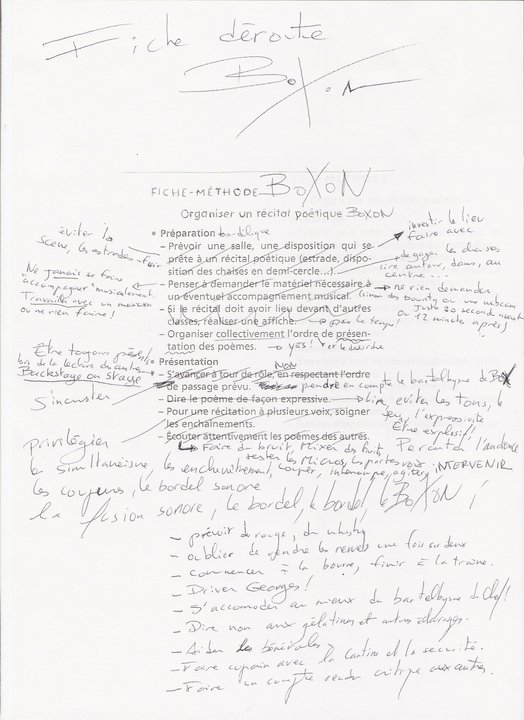 Fiche déroute
BoXoN
FICHE-MÉTHODE BOXON
Organiser un récital poétique BOXON
Préparation bordélique
– Prévoir une salle, une disposition qui se
prête à un récital poétique (estrade, dispo-
sition des chaises en demi-cercle...).
– Penser à demander le matériel nécessaire à
un éventuel accompagnement musical.
– Si le récital doit avoir lieu devant d'autres
classes, réaliser une affiche. → pas le temps!
– Organiser collectivement l'ordre de présen-
tation des poèmes. → yes! et le désordre
Présentation
NON
– S'avancer à tour de rôle, en respectant l'ordre
de passage prévu. prendre en compte le bartelbysme de BOX
– Dire le poème de façon expressive. → lire, éviter les tons, le
jeu, l'expressivité
Être explosif!
– Pour une récitation à plusieurs voix, soigner
les enchaînements.
– Écouter attentivement les poèmes des autres.
éviter la
scène, les estrades
Ne jamais se faire
"accompagner" musicalement.
Travailler avec un musicien
ou ne rien faire!
Être toujours
lors de la lecture des autres
Backstage ou stage
S'incruster
investir le lieu
faire avec
dégager les chaises
lire autour, dans, au
centre...
ne rien demander
ou une webcam
ou juste 30 secondes avant
ou 12 minute après!
Faire du bruit, Mixer des bruits, Percuter l'audience
tester les Micros, les portes voix, INTERVENIR
privilégier
le simultanéisme, les enchevêtrement, couper, interrompre,
les coupures, le bordel sonore
la fusion sonore, le bordel, le bordel, le BOXON!
– prévoir du rouge, du whisky
– oublier de rendre les nerveux une fois sur deux
– commencer à la bourre, finir à la traîne.
– Driver Georges!
– S'accomoder au mieux du bartelbysme du Chef!
– Dire non aux gélatines et autres éclairages.
– Aider les bénévoles
– Faire copain avec la cantine et la sécurité.
– Faire un compte rendu critique aux autres.